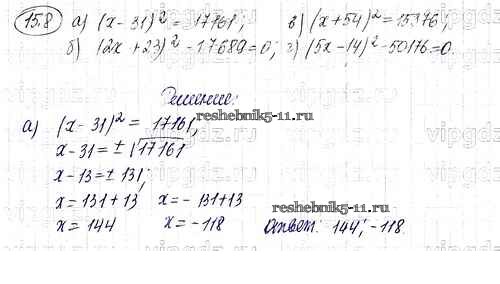 15.8 а) (x-31)² = 17161; в) (x+54)² = 15376;
б) (2x+23)² - 17689=0; г) (5x-14)² - 50176=0
Решение:
reshebnik5-11.ru
а) (x-31)² = 17161;
x-31 = ± √17161
x-13 = ± 131;
x = 131+13 x = - 131+13
x = 144 x = -118
reshebnik5-11.ru
Ответ: 144; -118